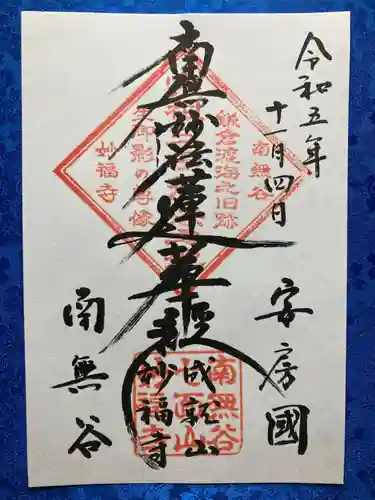 令和五年
十一月四日
安房國
南無妙法蓮華経
成就山
妙福寺
南無谷
南無谷
鎌倉渡海之旧跡
生御影の尊像
妙福寺
南無谷
妙福寺